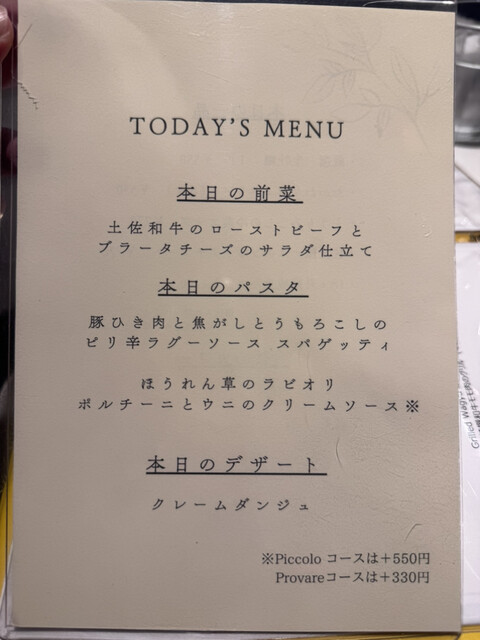 TODAY'S MENU
本日の前菜
土佐和牛のローストビーフと
ブラータチーズのサラダ仕立て
本日のパスタ
豚ひき肉と焦がしとうもろこしの
ピリ辛ラグーソース スパゲッティ
ほうれん草のラビオリ
ポルチーニとウニのクリームソース※
本日のデザート
クレームダンジュ
※Piccolo コースは＋550円
Provareコースは＋330円
Grilled Wagyu